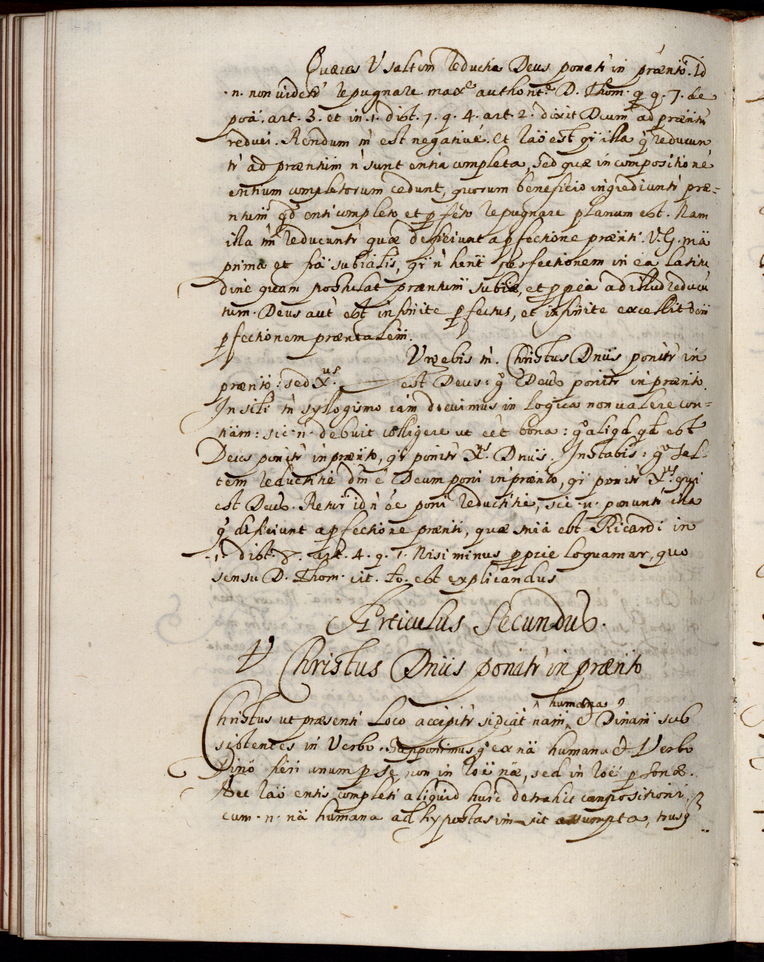 Quæres Vͬ saltim reductiè Deus ponatͬ in prænto. Id
·n· non videtͬ repugnare maxᵉ authontᵉ D. Thom. q̨ q. 7. de
poã. art. 3. et in ·1· dist. 7. q. 4. art. 2. dixit Deum ad præntũ
reduci. Rendum tñ est negativé. Et raõ est qͬ illa q̨ reducun
tͬ ad præntum ñ sunt entia completa, sed quæ in compositioné
entium completorum cedunt, quorum beneficio ingrediuntͬ præ-
ntum q̃d enti completo et p̱fecto repugnare planum est. Nam
illa tñ reducuntͬ quæ deficiunt a p̱fectione præntͥ. V.G. mã
prima et frã subialis, qͬ ñ hent perfectionem in ea latitu
dine quam postulat præntum subiæ, et p̱pea ad illud reducũ
tum. Deus aut est infinite p̱fectus, et infinite excellit oẽm
p̱fectionem præntalem.
Urgebis tñ. Christus Dñus ponitͬ in
prænto: sed Xᵘˢ est Deus: gͦ Deus ponitͬ in prænto.
In sili tñ syllogismo iam diximus in Logica non valere con-
nãm: sic ·n· debuit colligere ut eét bona: gͦ aliqͩ qͩ est
Deus ponitͬ in prænto, qͬ ponitͬ Xͭ Dnus. Instabis: gͦ sal-
tem reductiuè dm̃ é Deum poni in prænto, qͬ ponitͬ Xᵘˢ qui
est Deus. Retͬ id ñ ée poni reductiue, sic ·n· ponuntͬ illa
q̨ deficiunt a p̱fectione præntͥ, quæ sniã est Ricardi in
·1· dist. 8. art. 4. q. 1. Nisi minus p̱prie loquamur, quo
sensu D. Thom. cit. to. est explicandus.
Articulus Secundus.
Vͬ Christus Dñus ponatͬ in prænto
Christus ut præsenti loco accipitͬ sificat nam, humanã et Dinam sub
sistentes in Verbo. Supponimus gͦ ex nã humana et Verbo
Dino fieri unum p̱ se non in roẽ næ, sed in roẽ p̱sonæ.
Nec raõ entis completi aliquid huic detrahit compositioni
cum ·n· nã humana ad hypostasim sit assumpta, trusq̨